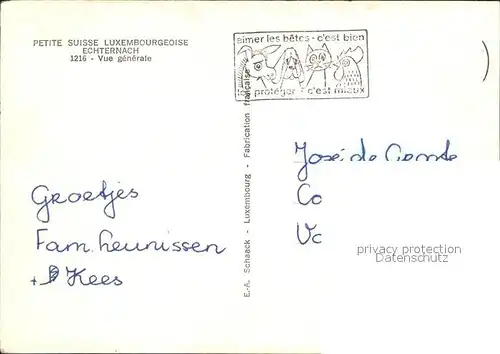 PETITE SUISSE LUXEMBOURGEOISE
ECHTERNACH
1216 - Vue générale
aimer les bêtes - c'est bien
protéger - c'est mieux
E.-A. Schaack - Luxembourg - Fabrication française
Groetjes
Fam. Leunissen
+ Kees
José de Comte
Co
Vc
privacy protection
Datenschutz